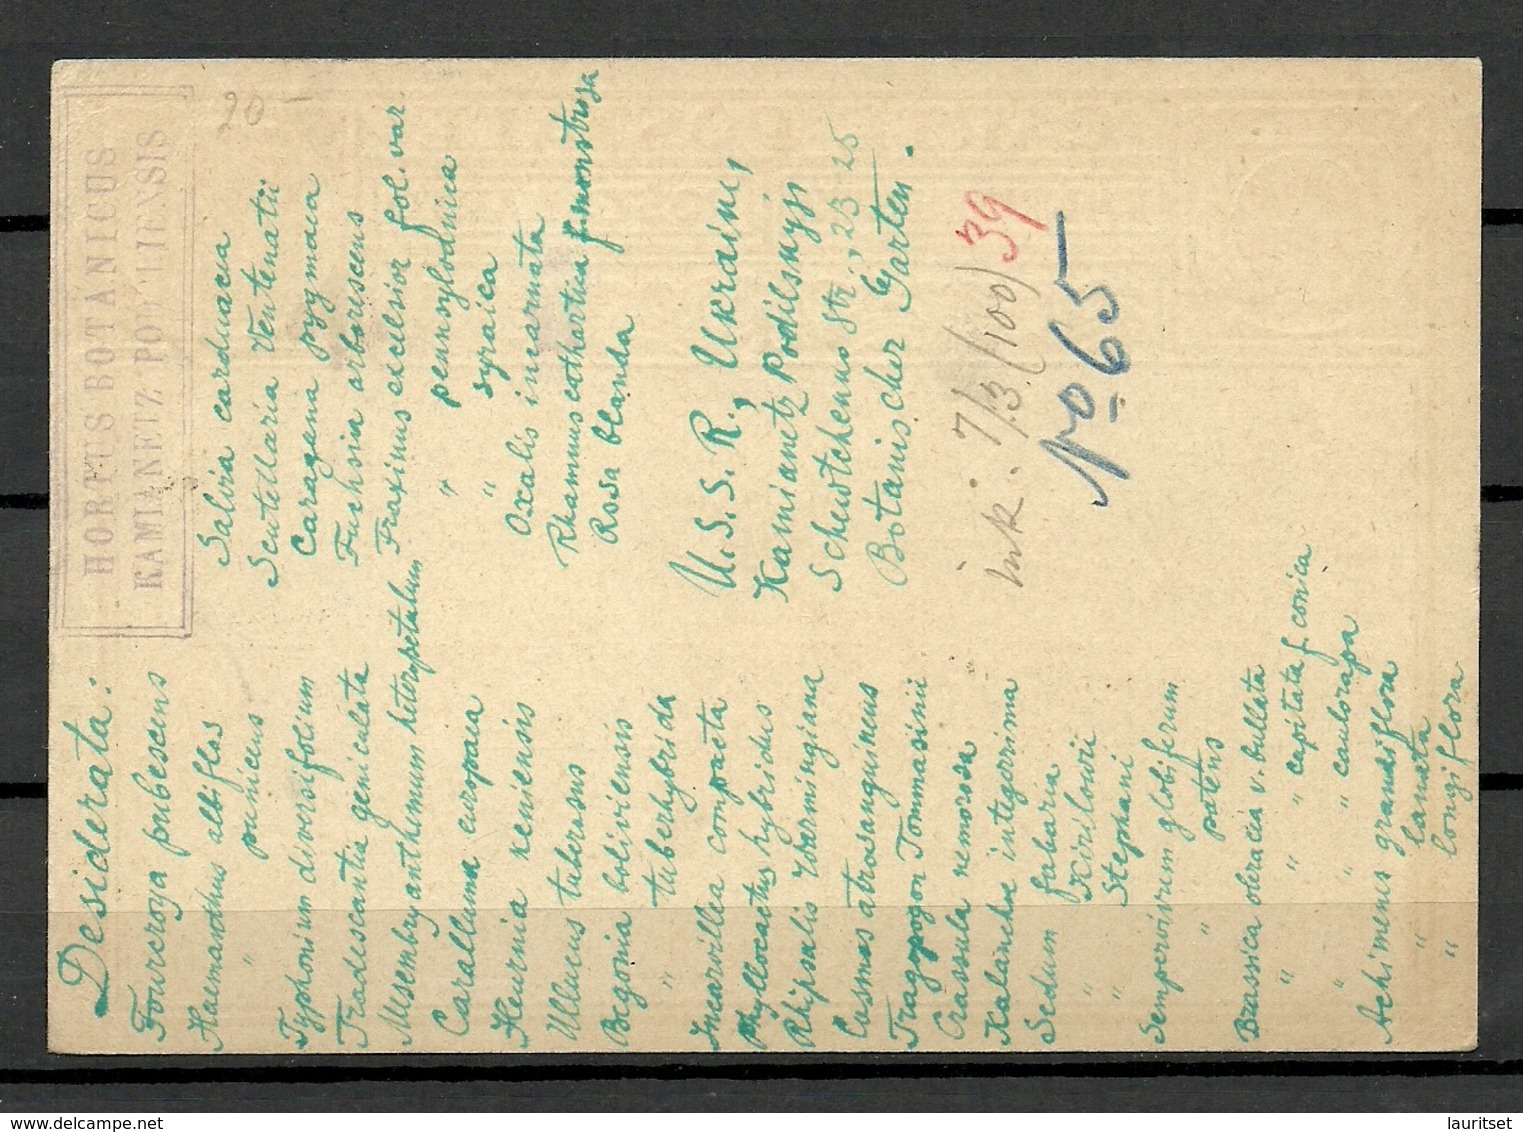 HORTUS BOTANICUS
KAMIANETZ PODILIENSIS
20 –
Desiderata:
Fourcroya pubescens
Haemanthus albiflos
" puniceus
Typhonium diversifolium
Tradescantia geniculata
Mesembryanthemum heteropetalum
Caralluma europaea
Heurnia keniensis
Ullucus tuberosus
Begonia boliviensis
" tuberhybrida
Incarvillea compacta
Phyllocactus hybridus
Rhipsalis Warmingiana
Cosmos atrosanguineus
Tragopogon Tommasinii
Crassula nemorosa
Kalanchoe integerrima
Sedum fabaria
" Kirilowii
" Stephani
Sempervivum globiferum
" patens
Brassica oleracia v. bullata
" " capitata f. conica
" " caulorapa
Achimenes grandiflora
" lanata
" longiflora
Salvia carduacea
Scutellaria Ventenatii
Caragena pygmaea
Fuchsia arborescens
Fraxinus excelsior fol. var.
" pennsylvanica
" syraica
Oxalis incarnata
Rhamnus cathartica f. monstrosa
Rosa blanda
U. S. S. R., Ukraine,
Kamianetz Podilskyj
Schewtchenus Str., 23-25
Botanischer Garten.
ink. 7/13. (100) 39
No 65
lauritset